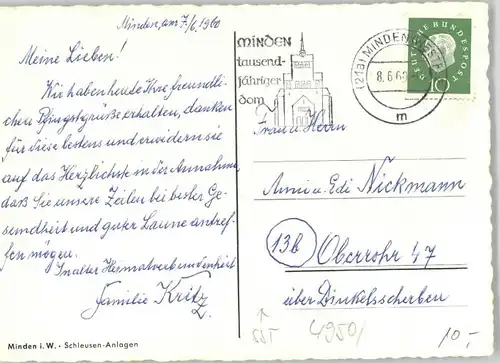 Minden, am 7/6. 1960
Meine Lieben!
Wir haben heute Ihre freundli-
chen Pfingstgrüße erhalten, danken
für diese bestens und erwidern sie
auf das Herzlichste in der Annahme,
daß Sie unsere Zeilen bei bester Ge-
sundheit und guter Laune antref-
fen mögen.
In alter Heimatverbundenheit
Familie Kritz
Minden i. W. · Schleusen-Anlagen
MINDEN
tausend-
jähriger
dom
(21a) MINDEN
8.6.60
m
DEUTSCHE BUNDESPOST
10
Frau u. Herrn
Anni u. Edi Nickmann
13b
Oberrohr 47
über Dinkelsscherben
4950/
10,-